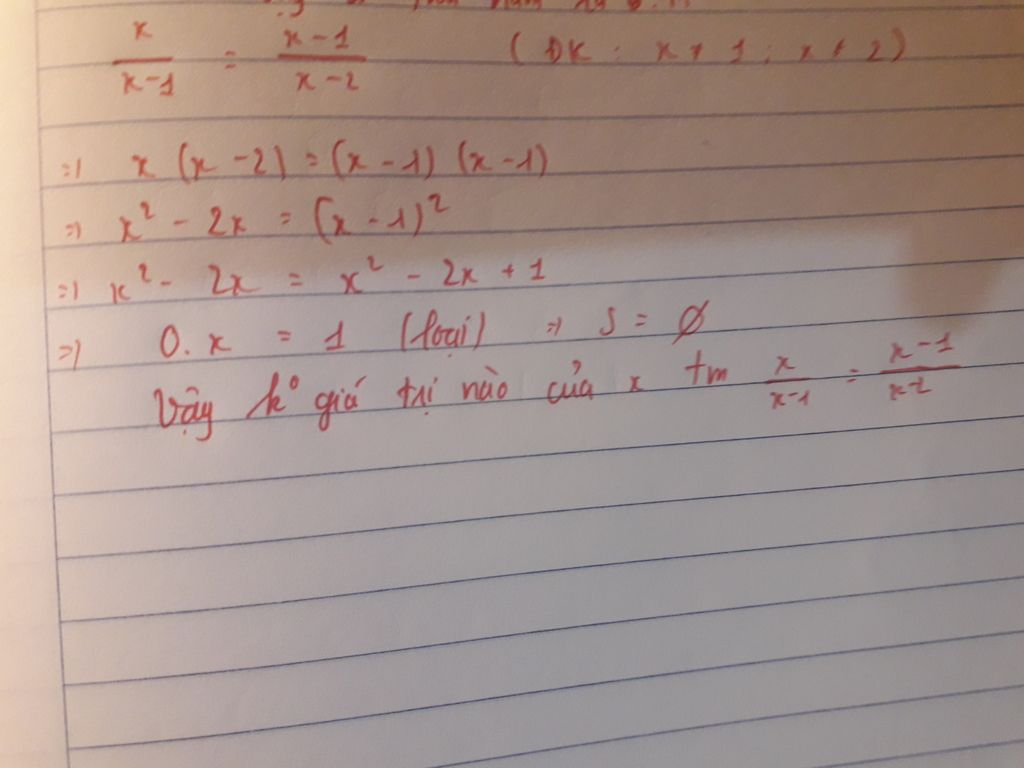 x/(x-1) = (x-1)/(x-2) (ĐK: x ≠ 1; x ≠ 2)
=> x (x - 2) = (x - 1) (x - 1)
=> x² - 2x = (x - 1)²
=> x² - 2x = x² - 2x + 1
=> 0. x = 1 (loại) => S = ∅
Vậy k° giá trị nào của x tm x/(x-1) = (x-1)/(x-2)